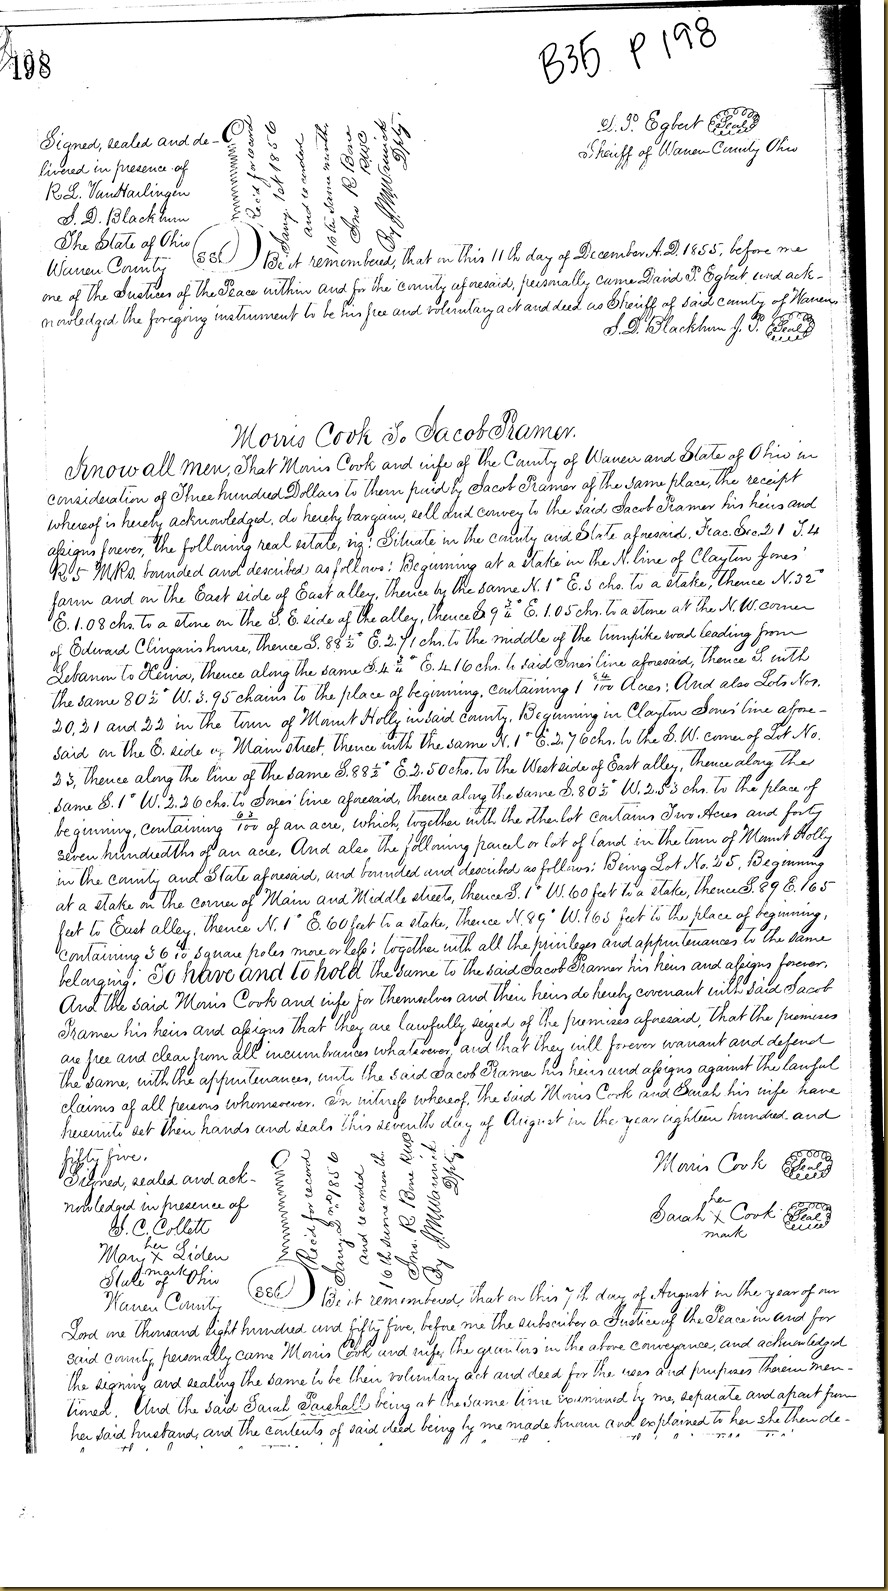 198
B35 P 198
D. P. Egbert (Seal)
Sheriff of Warren County Ohio
Signed, sealed and de-
livered in presence of
R. L. VanHarlingen
S. D. Blackburn
Rec'd for record
Jany 1st 1856
and recorded
16th same month
Jno R Bone
RWC
By J M Warwick
Dpty.
The State of Ohio
Warren County
(SSC)
Be it remembered, that on this 11th day of December, A.D. 1855, before me
one of the Justices of the Peace within and for the county aforesaid, personally came David P. Egbert, and ack-
nowledged the foregoing instrument to be his free and voluntary act and deed as Sheriff of said county of Warren
S. D. Blackburn J. P. (Seal)
Morris Cook To Jacob Pramer.
Know all men, That Morris Cook and wife of the County of Warren and State of Ohio in
consideration of Three hundred Dollars to them paid by Jacob Pramer of the same place, the receipt
whereof is hereby acknowledged, do hereby bargain, sell and convey to the said Jacob Pramer his heirs and
assigns forever, the following real estate, viz: Situate in the county and State aforesaid, Frac. Sec. 21 T. 4
R. 5 MRs. bounded and described as follows: Beginning at a stake in the N. line of Clayton Jones'
farm and on the East side of East alley, thence by the same N. 1° E. 3 chs. to a stake, thence N. 32°
E. 1.08 chs. to a stone on the S. E. side of the alley, thence S. 9 3/4° E. 1.05 chs. to a stone at the N. W. corner
of Edward Clingans house, thence S. 88 1/2° E. 2.71 chs. to the middle of the turnpike road leading from
Lebanon to Xenia, thence along the same S. 4 3/4° E. 4.16 chs. to said Jones' line aforesaid, thence S. with
the same 80 1/2° W. 3.95 chains to the place of beginning, containing 1 /100 Acres: And also Lots Nos.
20, 21 and 22 in the town of Mount Holly in said county. Beginning in Clayton Jones' line afore-
said on the E. side of Main street, thence with the same N. 1° E. 2.76 chs. to the S. W. corner of Lot No.
23, thence along the line of the same S. 88 1/2° E. 2.50 chs. to the West side of East alley, thence along the
same S. 1° W. 2.26 chs. to Jones' line aforesaid, thence along the same S. 80 1/2° W. 2.53 chs. to the place of
beginning, containing 63/100 of an acre, which, together with the other lot contains Two Acres and forty
seven hundredths of an acre. And also the following parcel or lot of land in the town of Mount Holly
in the county and State aforesaid, and bounded and described as follows: Being Lot No. 25, Beginning
at a stake on the corner of Main and Middle streets, thence S. 1° W. 60 feet to a stake, thence S. 89 E. 165
feet to East alley, thence N. 1° E. 60 feet to a stake, thence N. 89° W. 165 feet to the place of beginning,
containing 36 /10 square poles more or less; together with all the privileges and appurtenances to the same
belonging; To have and to hold the same to the said Jacob Pramer his heirs and assigns forever.
And the said Morris Cook and wife for themselves and their heirs do hereby covenant with said Jacob
Pramer his heirs and assigns that they are lawfully seized of the premises aforesaid, that the premises
are free and clear from all incumbrances whatsoever, and that they will forever warrant and defend
the same, with the appurtenances, unto the said Jacob Pramer his heirs and assigns against the lawful
claims of all persons whomsoever. In witness whereof, the said Morris Cook and Sarah his wife have
hereunto set their hands and seals this seventh day of August in the year eighteen hundred and
fifty five.
Signed, sealed and ack-
nowledged in presence of
S. C. Collett
her
Mary X Liden
mark
Rec'd for record
Jany 2nd 1856
and recorded
16th same month
Jno. R. Bone RWC
By J M Warwick
Dpty.
Morris Cook (Seal)
her
Sarah X Cook (Seal)
mark
State of Ohio
Warren County
(SSC)
Be it remembered, that on this 7th day of August in the year of our
Lord one thousand eight hundred and fifty five, before me the subscriber a Justice of the Peace in and for
said county, personally came Morris Cook and wife, the grantors in the above conveyance, and acknowledged
the signing and sealing the same to be their voluntary act and deed for the uses and purposes therein men-
tioned. And the said Sarah Parshall being at the same time examined by me, separate and apart from
her said husband, and the contents of said deed being by me made known and explained to her she then de-